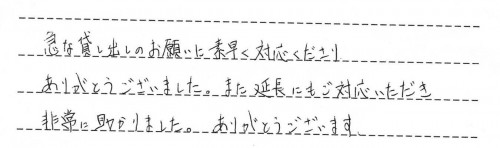 急な貸し出しのお願いに素早く対応くださり
ありがとうございました。また延長にもご対応いただき
非常に助かりました。ありがとうございます